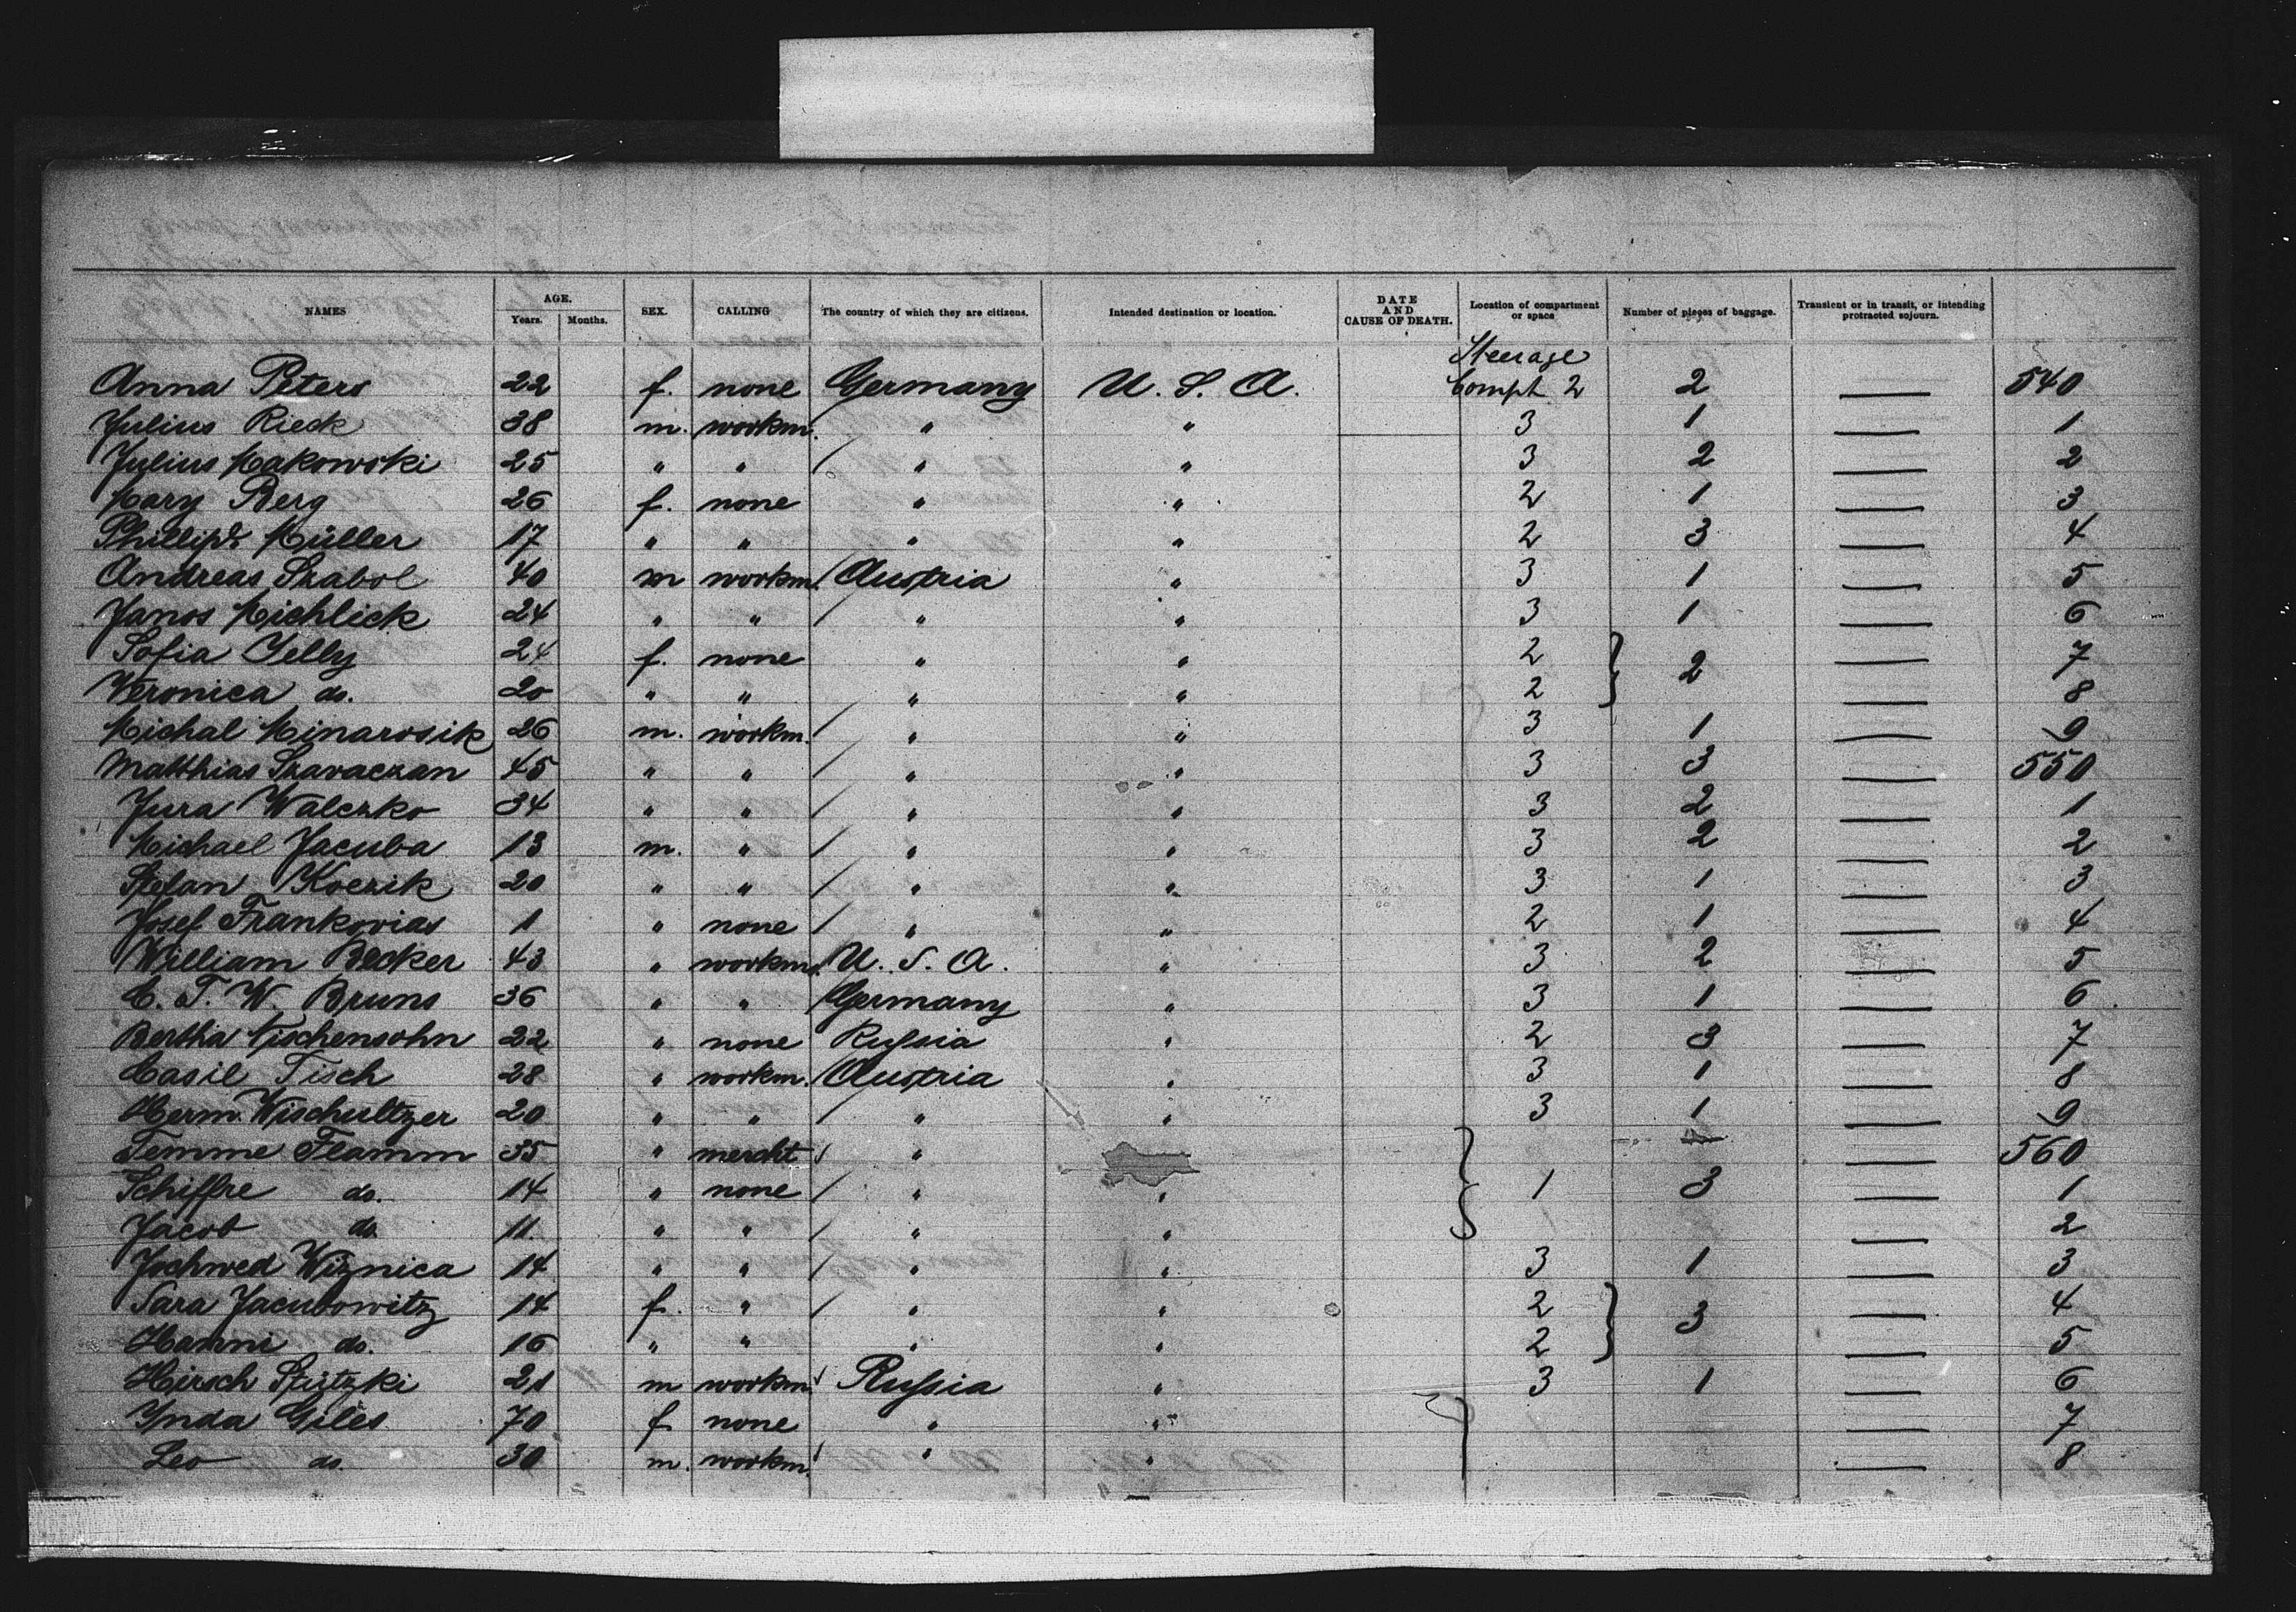 NAMES AGE. Years. Months. SEX. CALLING The country of which they are citizens. Intended destination or location. DATE AND CAUSE OF DEATH. Location of compartment or space Number of pieces of baggage. Transient or in transit, or intending protracted sojourn.
Steerage
Anna Peters 22 f. none Germany U. S. A. Compt. 2 2 — 540
Julius Rieck 38 m. workm. " " 3 1 — 1
Julius Makowski 25 " " " " 3 2 — 2
Mary Berg 26 f. none " " 2 1 — 3
Müller 17 " " " " 2 3 — 4
Andreas Szabol 40 m workm. Austria " 3 1 — 5
Janos Michlick 24 " " " " 3 1 — 6
Sofia Yelly 24 f. none " " 2 2 — 7
Veronica do. 20 " " " " 2 — 8
Michal Minarosik 26 m. workm. " " 3 1 — 9
Matthias Szavaczan 45 " " " " 3 3 — 550
Jura Walczko 34 " " " " 3 2 — 1
Michael Jacuba 13 m. " " " 3 2 — 2
Stefan Koczik 20 " " " " 3 1 — 3
Josef Frankovias 1 " none " " 2 1 — 4
William Becker 43 " workm. U. S. A. " 3 2 — 5
C. F. W. Bruns 36 " " Germany " 3 1 — 6
Bertha Nischensohn 22 " none Russia " 2 3 — 7
Casil Tisch 28 " workm. Austria " 3 1 — 8
Herm. Wischultzer 20 " " " " 3 1 — 9
Temme Flamm 35 " mercht " — 560
Schiffre do. 14 " none " " 1 3 — 1
Jacob do. 11 " " " " — 2
Jochwed Wiznica 14 " " " " 3 1 — 3
Sara Jacubowitz 14 f. " " " 2 3 — 4
Hanni do. 16 " " " " 2 — 5
Hirsch Stutzki 21 m workm. Russia " 3 1 — 6
Ynda Giles 70 f none " " — 7
Leo do. 30 m. workm. " " — 8